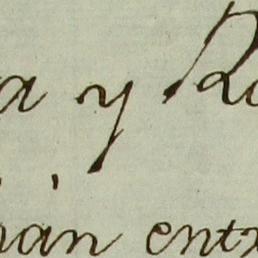 a y R
rán entr